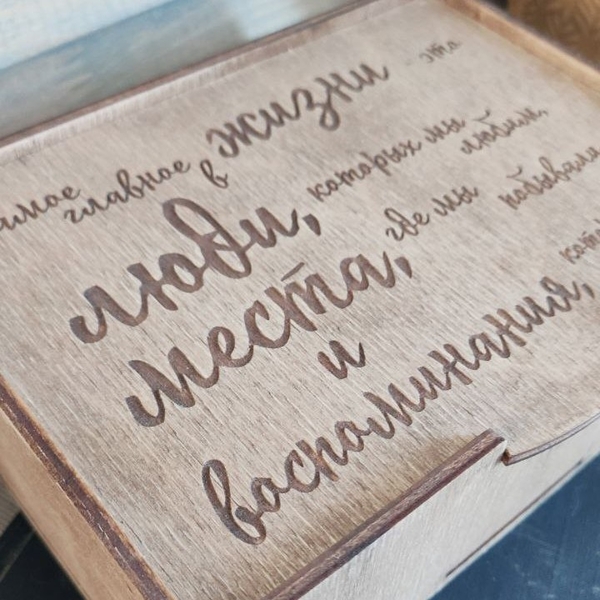 главное в жизни это
люди, которых мы любим,
места, где мы побывали
и
воспоминания,